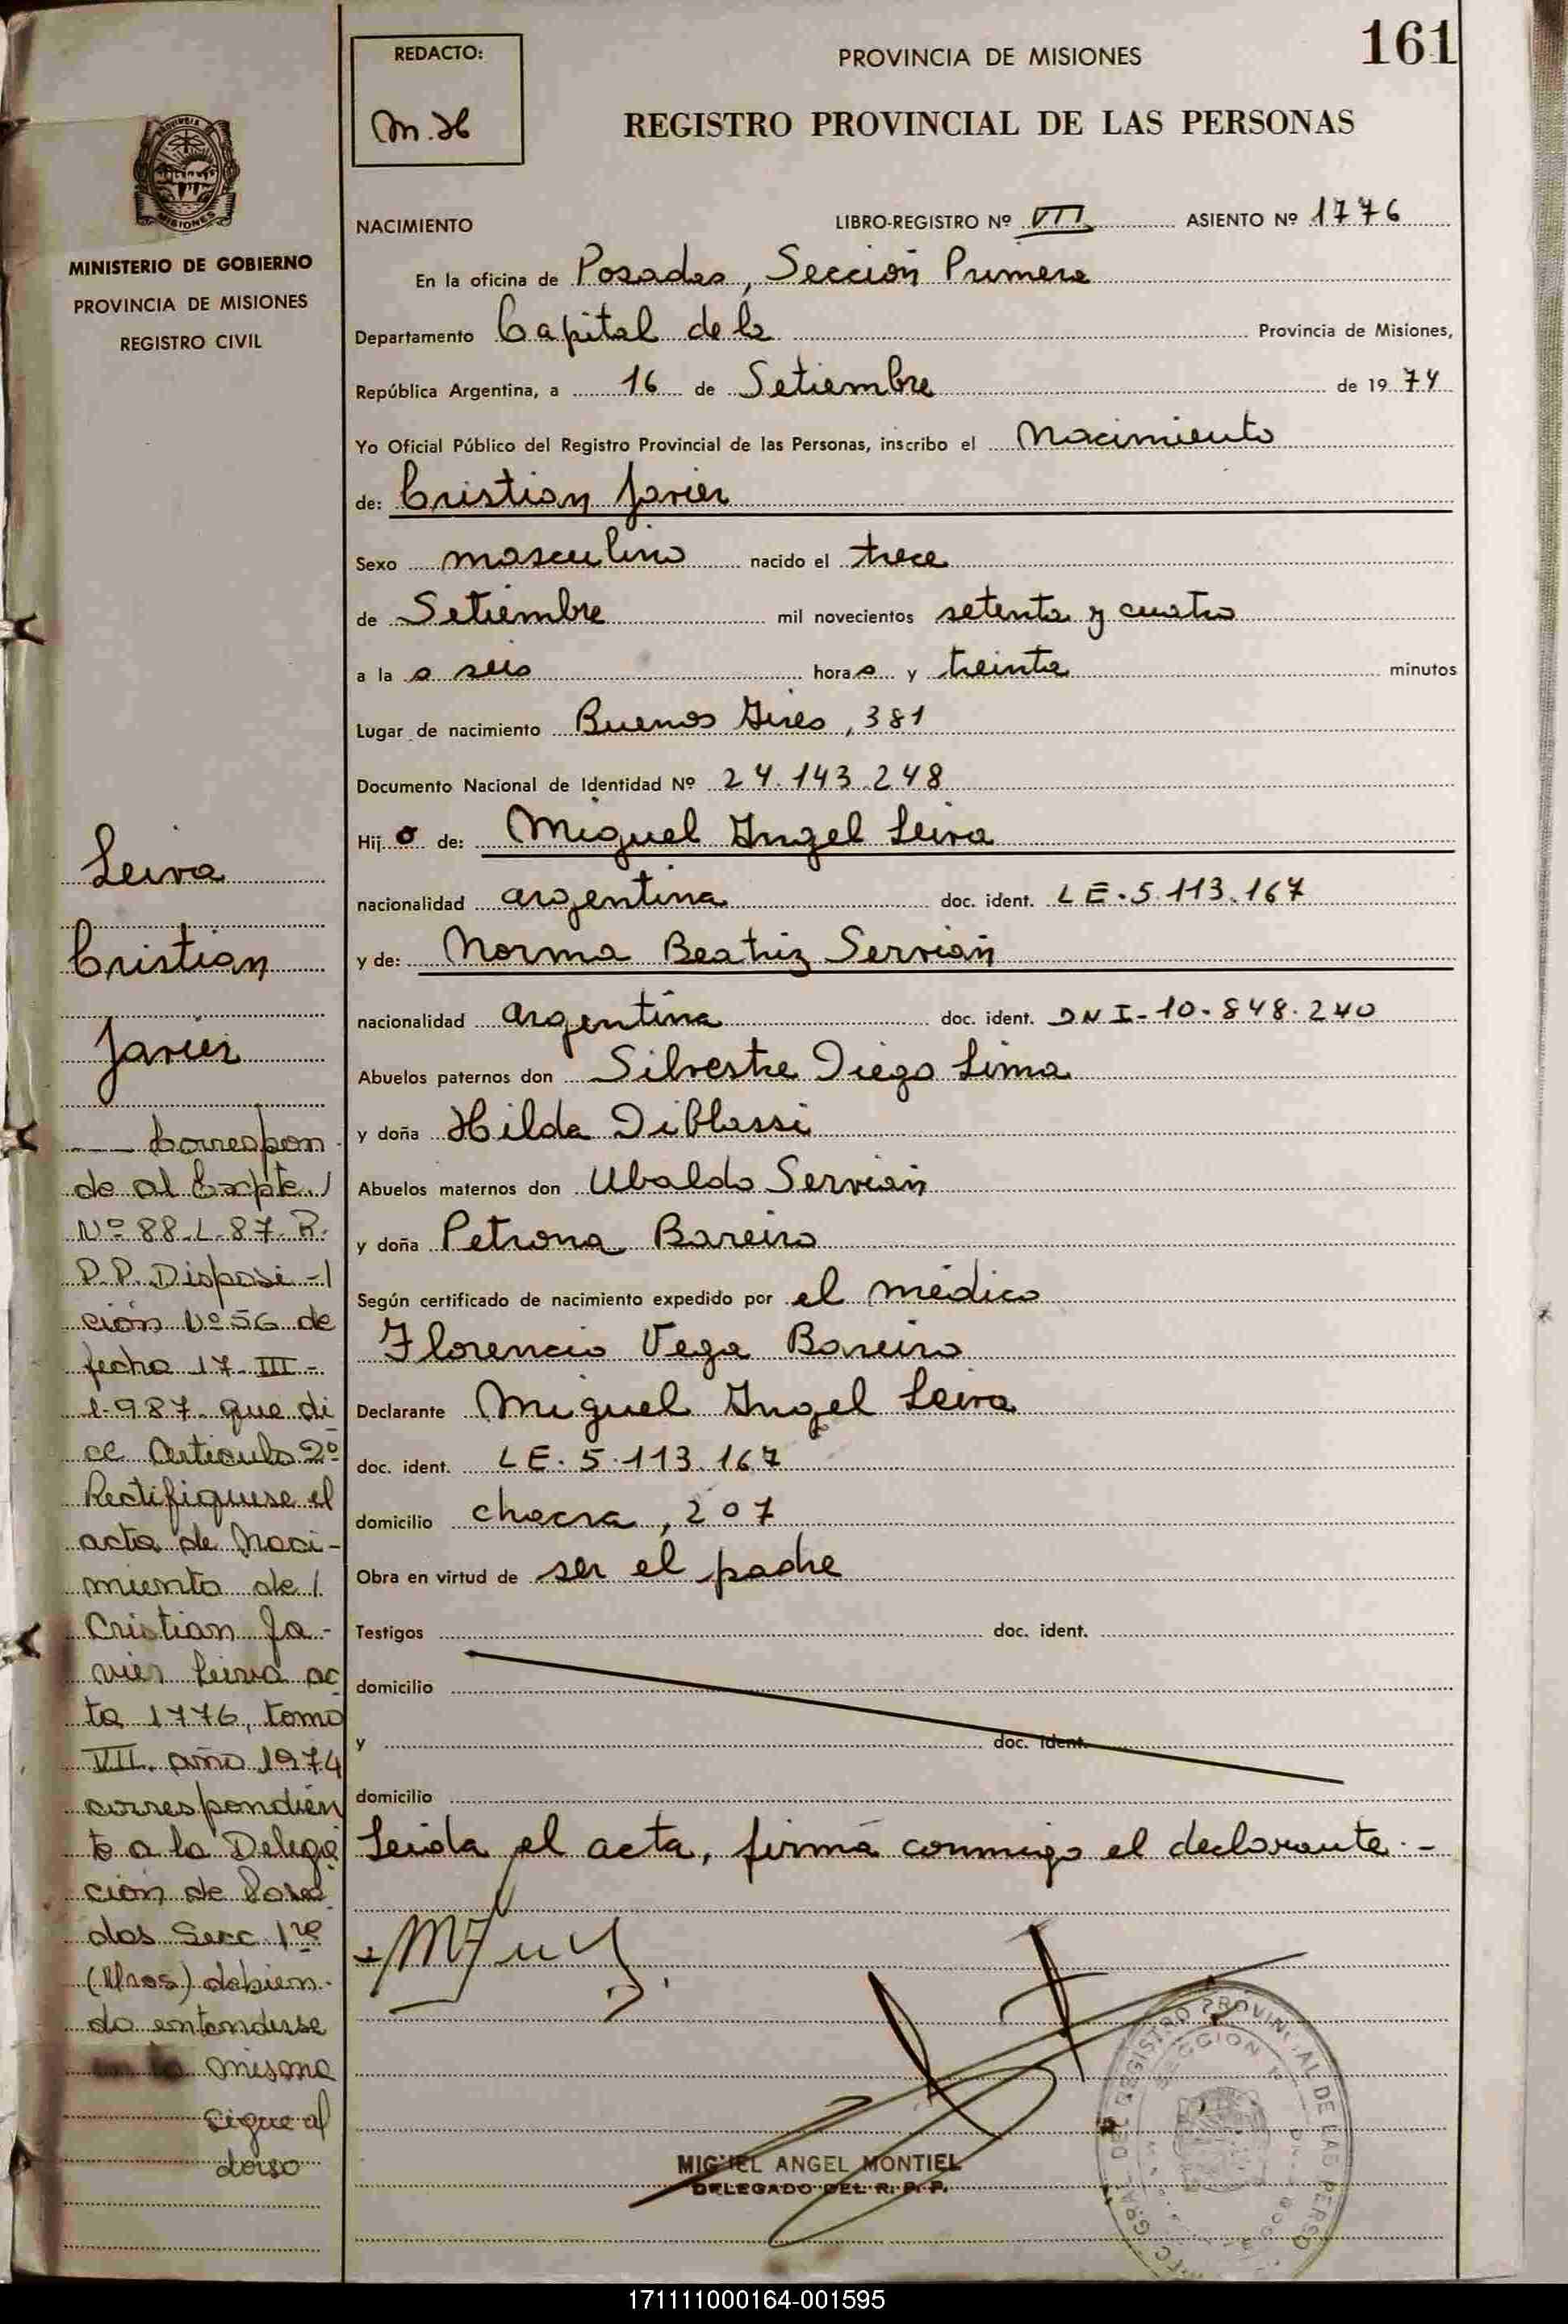 161
REDACTO:
M.H
PROVINCIA DE MISIONES
REGISTRO PROVINCIAL DE LAS PERSONAS
MISIONES
MINISTERIO DE GOBIERNO
PROVINCIA DE MISIONES
REGISTRO CIVIL
NACIMIENTO LIBRO-REGISTRO Nº VII ASIENTO Nº 1776
En la oficina de Posadas, Sección Primera
Departamento Capital de la Provincia de Misiones,
República Argentina, a 16 de Setiembre de 1974
Yo Oficial Público del Registro Provincial de las Personas, inscribo el Nacimiento
de: Cristian Javier
Sexo masculino nacido el trece
de Setiembre mil novecientos setenta y cuatro
a la s seis horas y treinta minutos
Lugar de nacimiento Buenos Aires, 381
Documento Nacional de Identidad Nº 24.143.248
Hijo de: Miguel Angel Leiva
nacionalidad argentina doc. ident. LE.5.113.167
y de: Norma Beatriz Servián
nacionalidad argentina doc. ident. DNI-10.848.240
Abuelos paternos don Silvestre Diego Lima
y doña Hilda Diblassi
Abuelos maternos don Ubaldo Servián
y doña Petrona Bareiro
Según certificado de nacimiento expedido por el médico
Florencio Vega Bareiro
Declarante Miguel Angel Leiva
doc. ident. LE.5.113.167
domicilio chacra, 207
Obra en virtud de ser el padre
Testigos doc. ident.
domicilio
y doc. ident.
domicilio
Leida el acta, firma conmigo el declarante.-
MIGUEL ANGEL MONTIEL
DELEGADO DEL R. P. P.
Leiva
Cristian
Javier
Correspon
de al Expte./
Nº 88.L.87.R.
P.P. Disposi-/
ción Nº 56 de
fecha 17-III-
1.987. que di
ce Articulo 2º
Rectifiquese el
acta de Naci-
miento de /
Cristian Ja-
vier Leiva ac
ta 1776, tomo
VII. año 1974
correspondien
te a la Delega
ción de Posa
das Secc 1ra
(Mnes) debien-
do entenderse
en la misma
sigue al
dorso
171111000164-001595